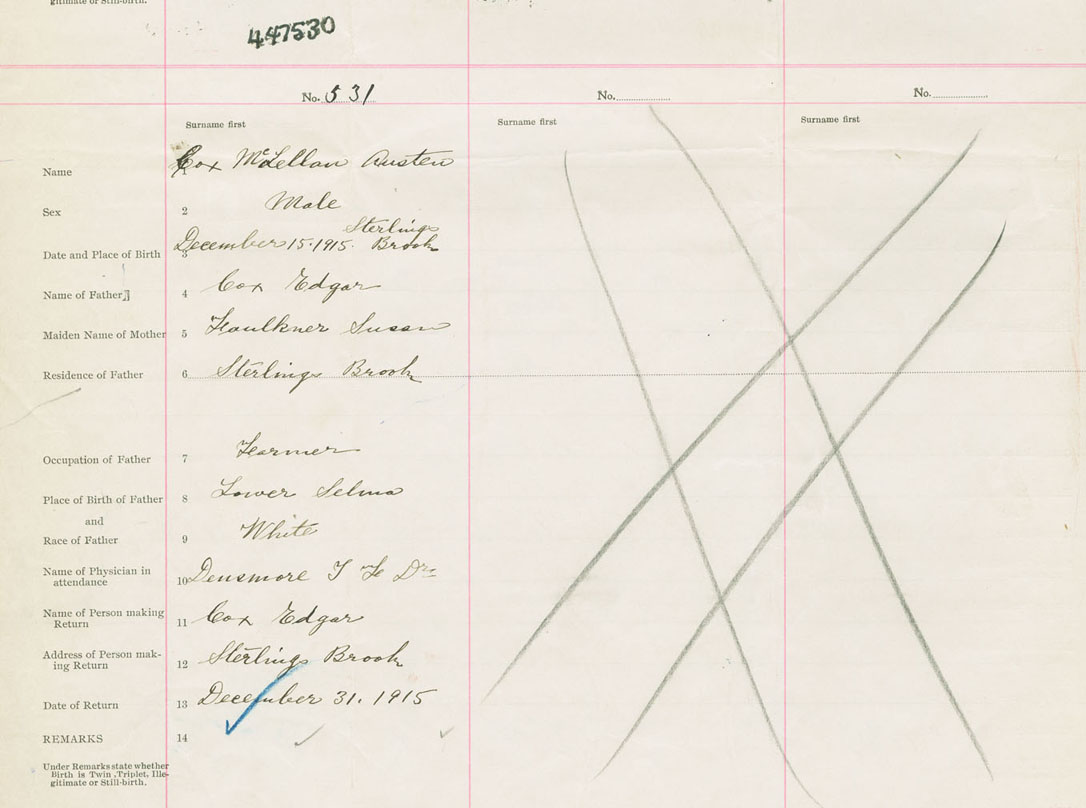 gitimate or Still-birth.
447530
No. 531
No.
No.
Surname first
Surname first
Surname first
Name 1 Cox McLellan Austen
Sex 2 Male
Date and Place of Birth 3 December 15. 1915. Sterlings Brook
Name of Father 4 Cox Edgar
Maiden Name of Mother 5 Faulkner Susan
Residence of Father 6 Sterlings Brook
Occupation of Father 7 Farmer
Place of Birth of Father 8 Lower Selma
and
Race of Father 9 White
Name of Physician in
attendance 10 Densmore J Fe Drs
Name of Person making
Return 11 Cox Edgar
Address of Person mak-
ing Return 12 Sterlings Brook
Date of Return 13 December 31. 1915
REMARKS 14
Under Remarks state whether
Birth is Twin, Triplet, Ille-
gitimate or Still-birth.